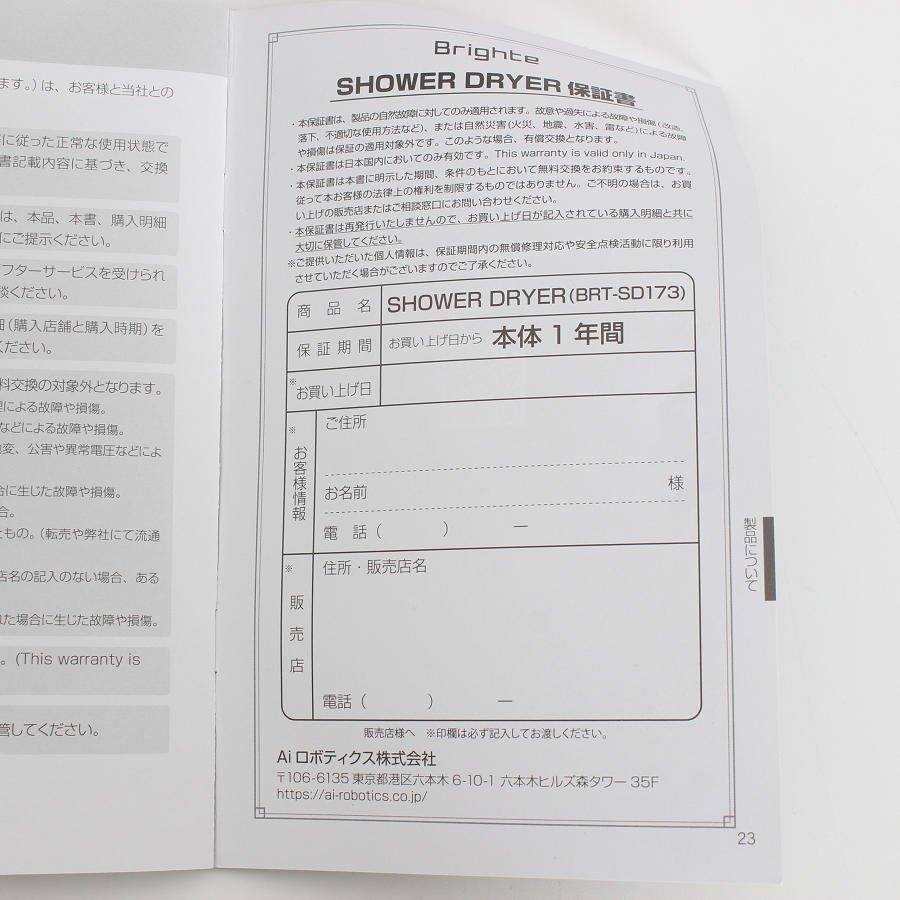 ます。)は、お客様と当社との
に従った正常な使用状態で
書記載内容に基づき、交換
は、本品、本書、購入明細
にご提示ください。
フターサービスを受けられ
談ください。
細(購入店舗と購入時期)を
ください。
料交換の対象外となります。
理による故障や損傷。
などによる故障や損傷。
変、公害や異常電圧などによ
合に生じた故障や損傷。
合。
たもの。(転売や弊社にて流通
店名の記入のない場合、ある
れた場合に生じた故障や損傷。
。(This warranty is
管してください。
Brighte
SHOWER DRYER 保証書
・本保証書は、製品の自然故障に対してのみ適用されます。故意や過失による故障や損傷(改造、
落下、不適切な使用方法など)、または自然災害(火災、地震、水害、雷など)による故障
や損傷は保証の適用対象外です。このような場合、有償交換となります。
・本保証書は日本国内においてのみ有効です。This warranty is valid only in Japan.
・本保証書は本書に明示した期間、条件のもとにおいて無料交換をお約束するものです。
従って本お客様の法律上の権利を制限するものではありません。ご不明の場合は、お買
い上げの販売店またはご相談窓口にお問い合わせください。
・本保証書は再発行いたしませんので、お買い上げ日が記入されている購入明細と共に
大切に保管してください。
※ご提供いただいた個人情報は、保証期間内の無償修理対応や安全点検活動に限り利用
させていただく場合がございますのでご了承ください。
商品名 SHOWER DRYER (BRT-SD173)
保証期間 お買い上げ日から 本体 1 年間
※お買い上げ日
※お客様情報
ご住所
お名前 様
電話( ) ー
※販売店
住所・販売店名
電話( ) ー
販売店様へ ※印欄は必ず記入してお渡しください。
Ai ロボティクス株式会社
〒106-6135 東京都港区六本木 6-10-1 六本木ヒルズ森タワー 35F
https://ai-robotics.co.jp/
製品について
23